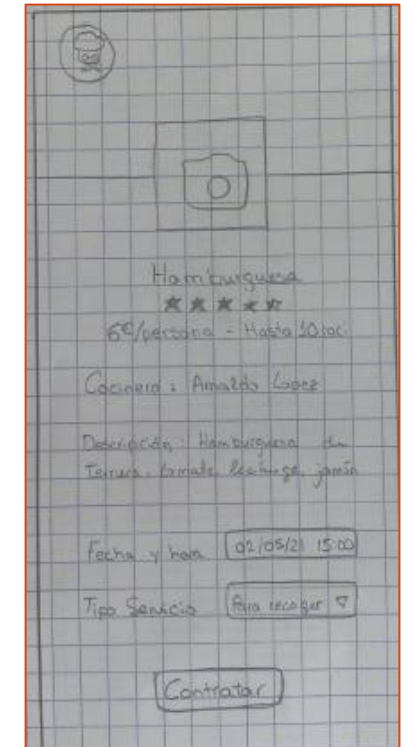 Hamburguesa
6€/persona - Hasta 10 rac
Cocinero: Arnaldo Lopez
Descripción: Hamburguesa de
Ternera, tomate, lechuga, jamón
Fecha y hora 02/05/21 15:00
Tipo Servicio Para recoger
Contratar